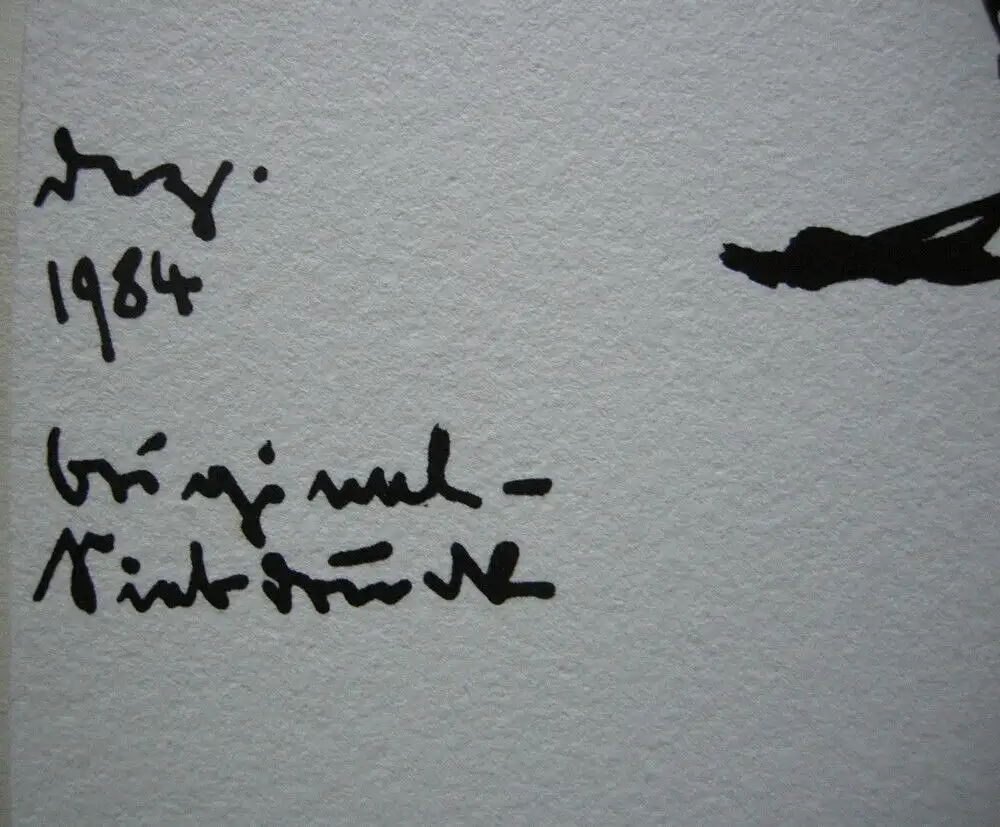 Dez.
1984
Original-
Siebdruck